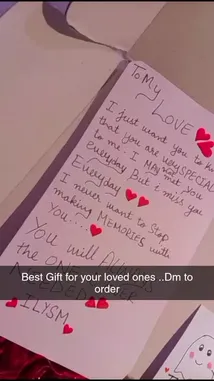 To My
LOVE
I just want you to
that you are very SPECIAL
to me. I May not met you
everyday But i miss you
Everyday
I never want to stop
making MEMORIES with
You....
You will
the ONE
Best Gift for your loved ones ..Dm to
order
ILYSM